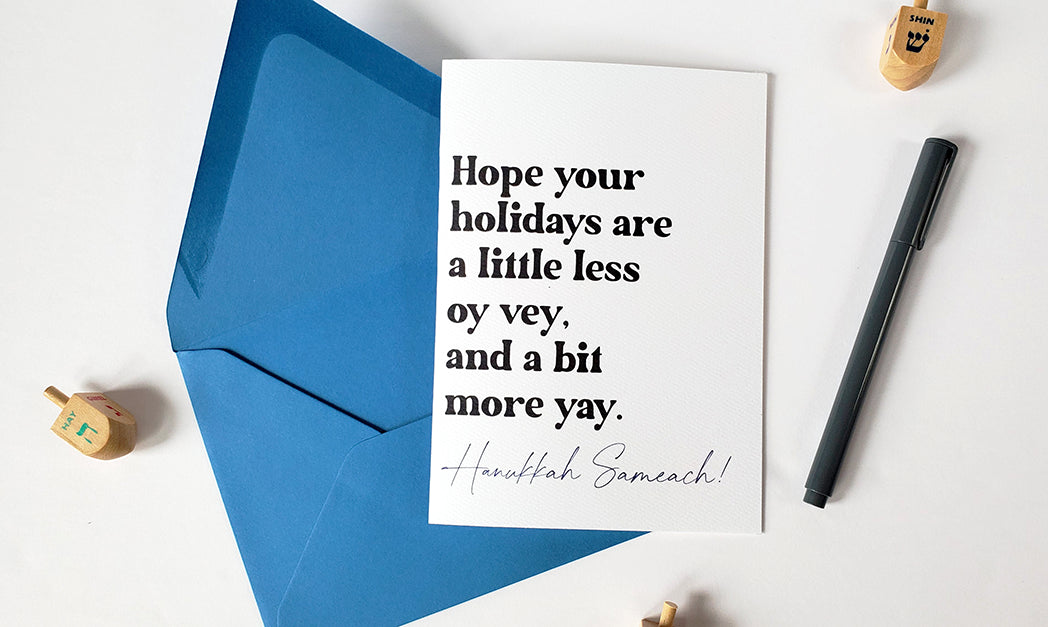 SHIN
ש
Hope your
holidays are
a little less
oy vey,
and a bit
more yay.
Hanukkah Sameach!
HAY
ה